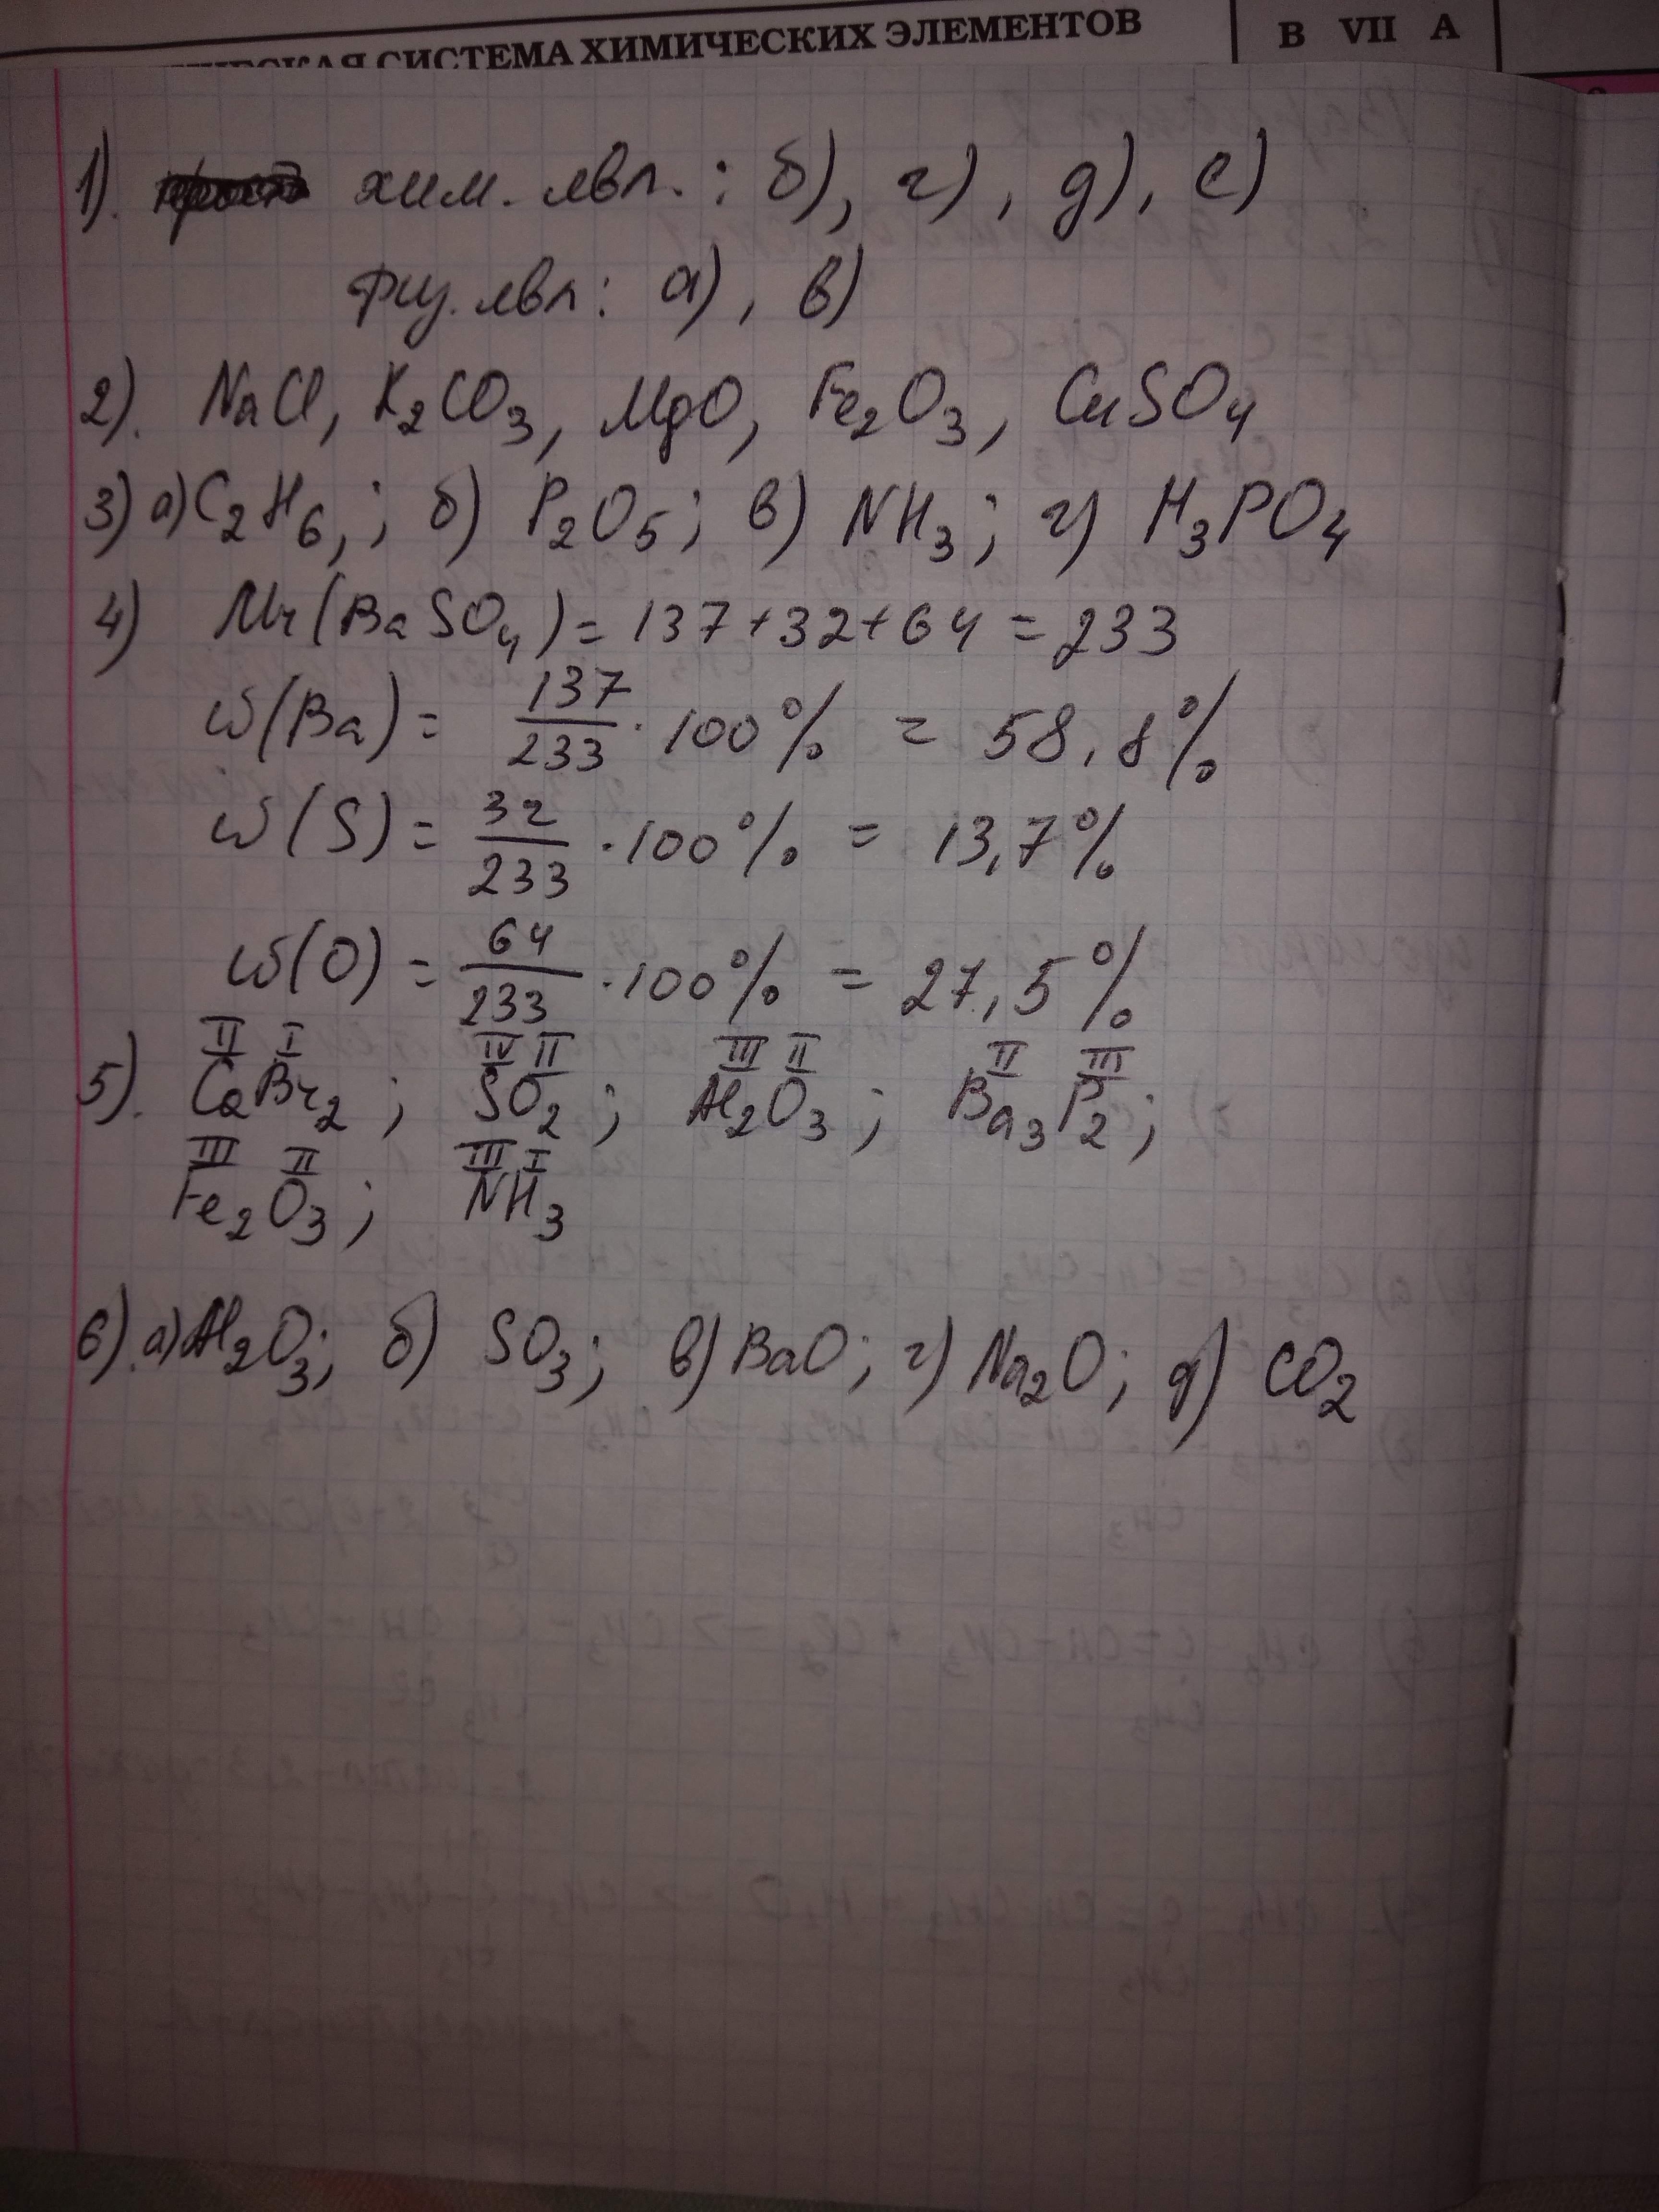 СИСТЕМА ХИМИЧЕСКИХ ЭЛЕМЕНТОВ
В VII А
1). хим. явл. : б), г), д), е)
физ. явл : а), в)
2). NaCl, K₂CO₃, MgO, Fe₂O₃, CuSO₄
3) а) C₂H₆, ; б) P₂O₅; в) NH₃; г) H₃PO₄
4) Mr(BaSO₄) = 137+32+64 = 233
ω(Ba) = 137/233 · 100% = 58,8%
ω(S) = 32/233 · 100% = 13,7%
ω(O) = 64/233 · 100% = 27,5%
II I IV II III II II III
5). CaBr₂; SO₂; Al₂O₃; Ba₃P₂;
III II III I
Fe₂O₃; NH₃
6). а) Al₂O₃; б) SO₃; в) BaO; г) Na₂O; д) CO₂